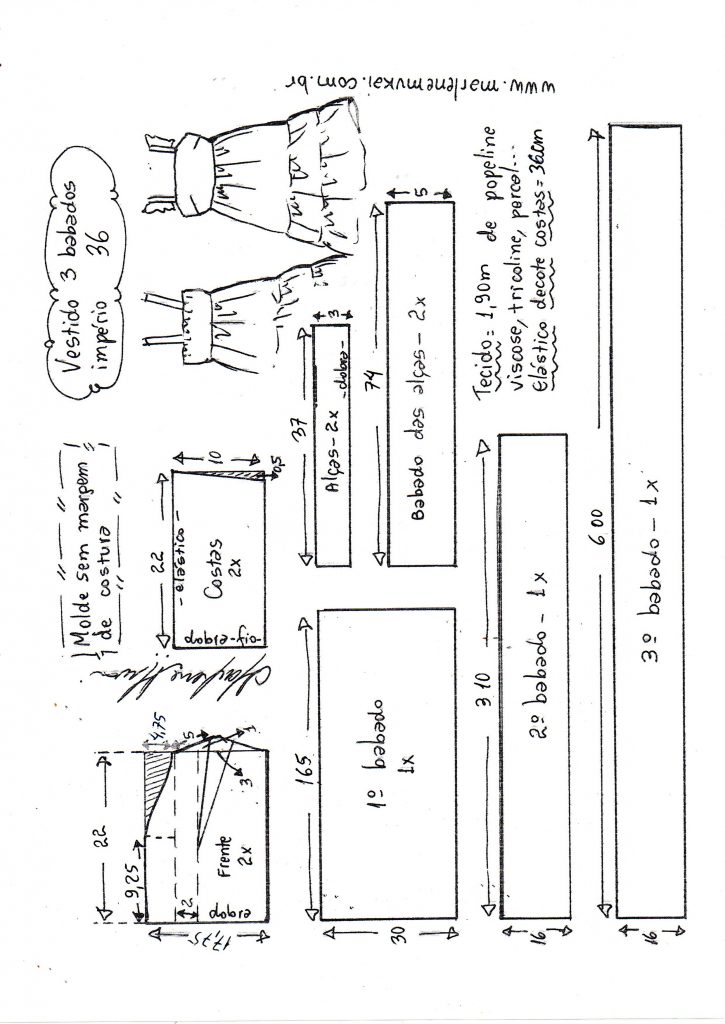 Vestido 3 babados
império 36
Molde sem margem
de costura
www.marlenemukai.com.br
22
9,25
4,75
5
1
3
2
17,75
Frente
2x
dobra
22
- elástico -
Costas
2x
dobra-fio-
10
0,5
37
Alças - 2x - dobra -
3
74
Babado das alças - 2x
5
165
1º babado
1x
30
310
2º babado - 1x
16
Tecido = 1,90m de popeline
viscose, tricoline, percal...
Elástico decote costas = 36cm
600
3º babado - 1x
16